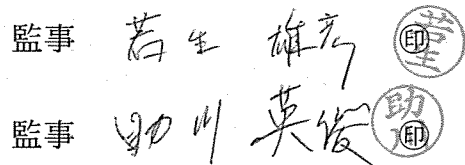 監事 若生 雄彦 ㊞
監事 助川 英俊 ㊞